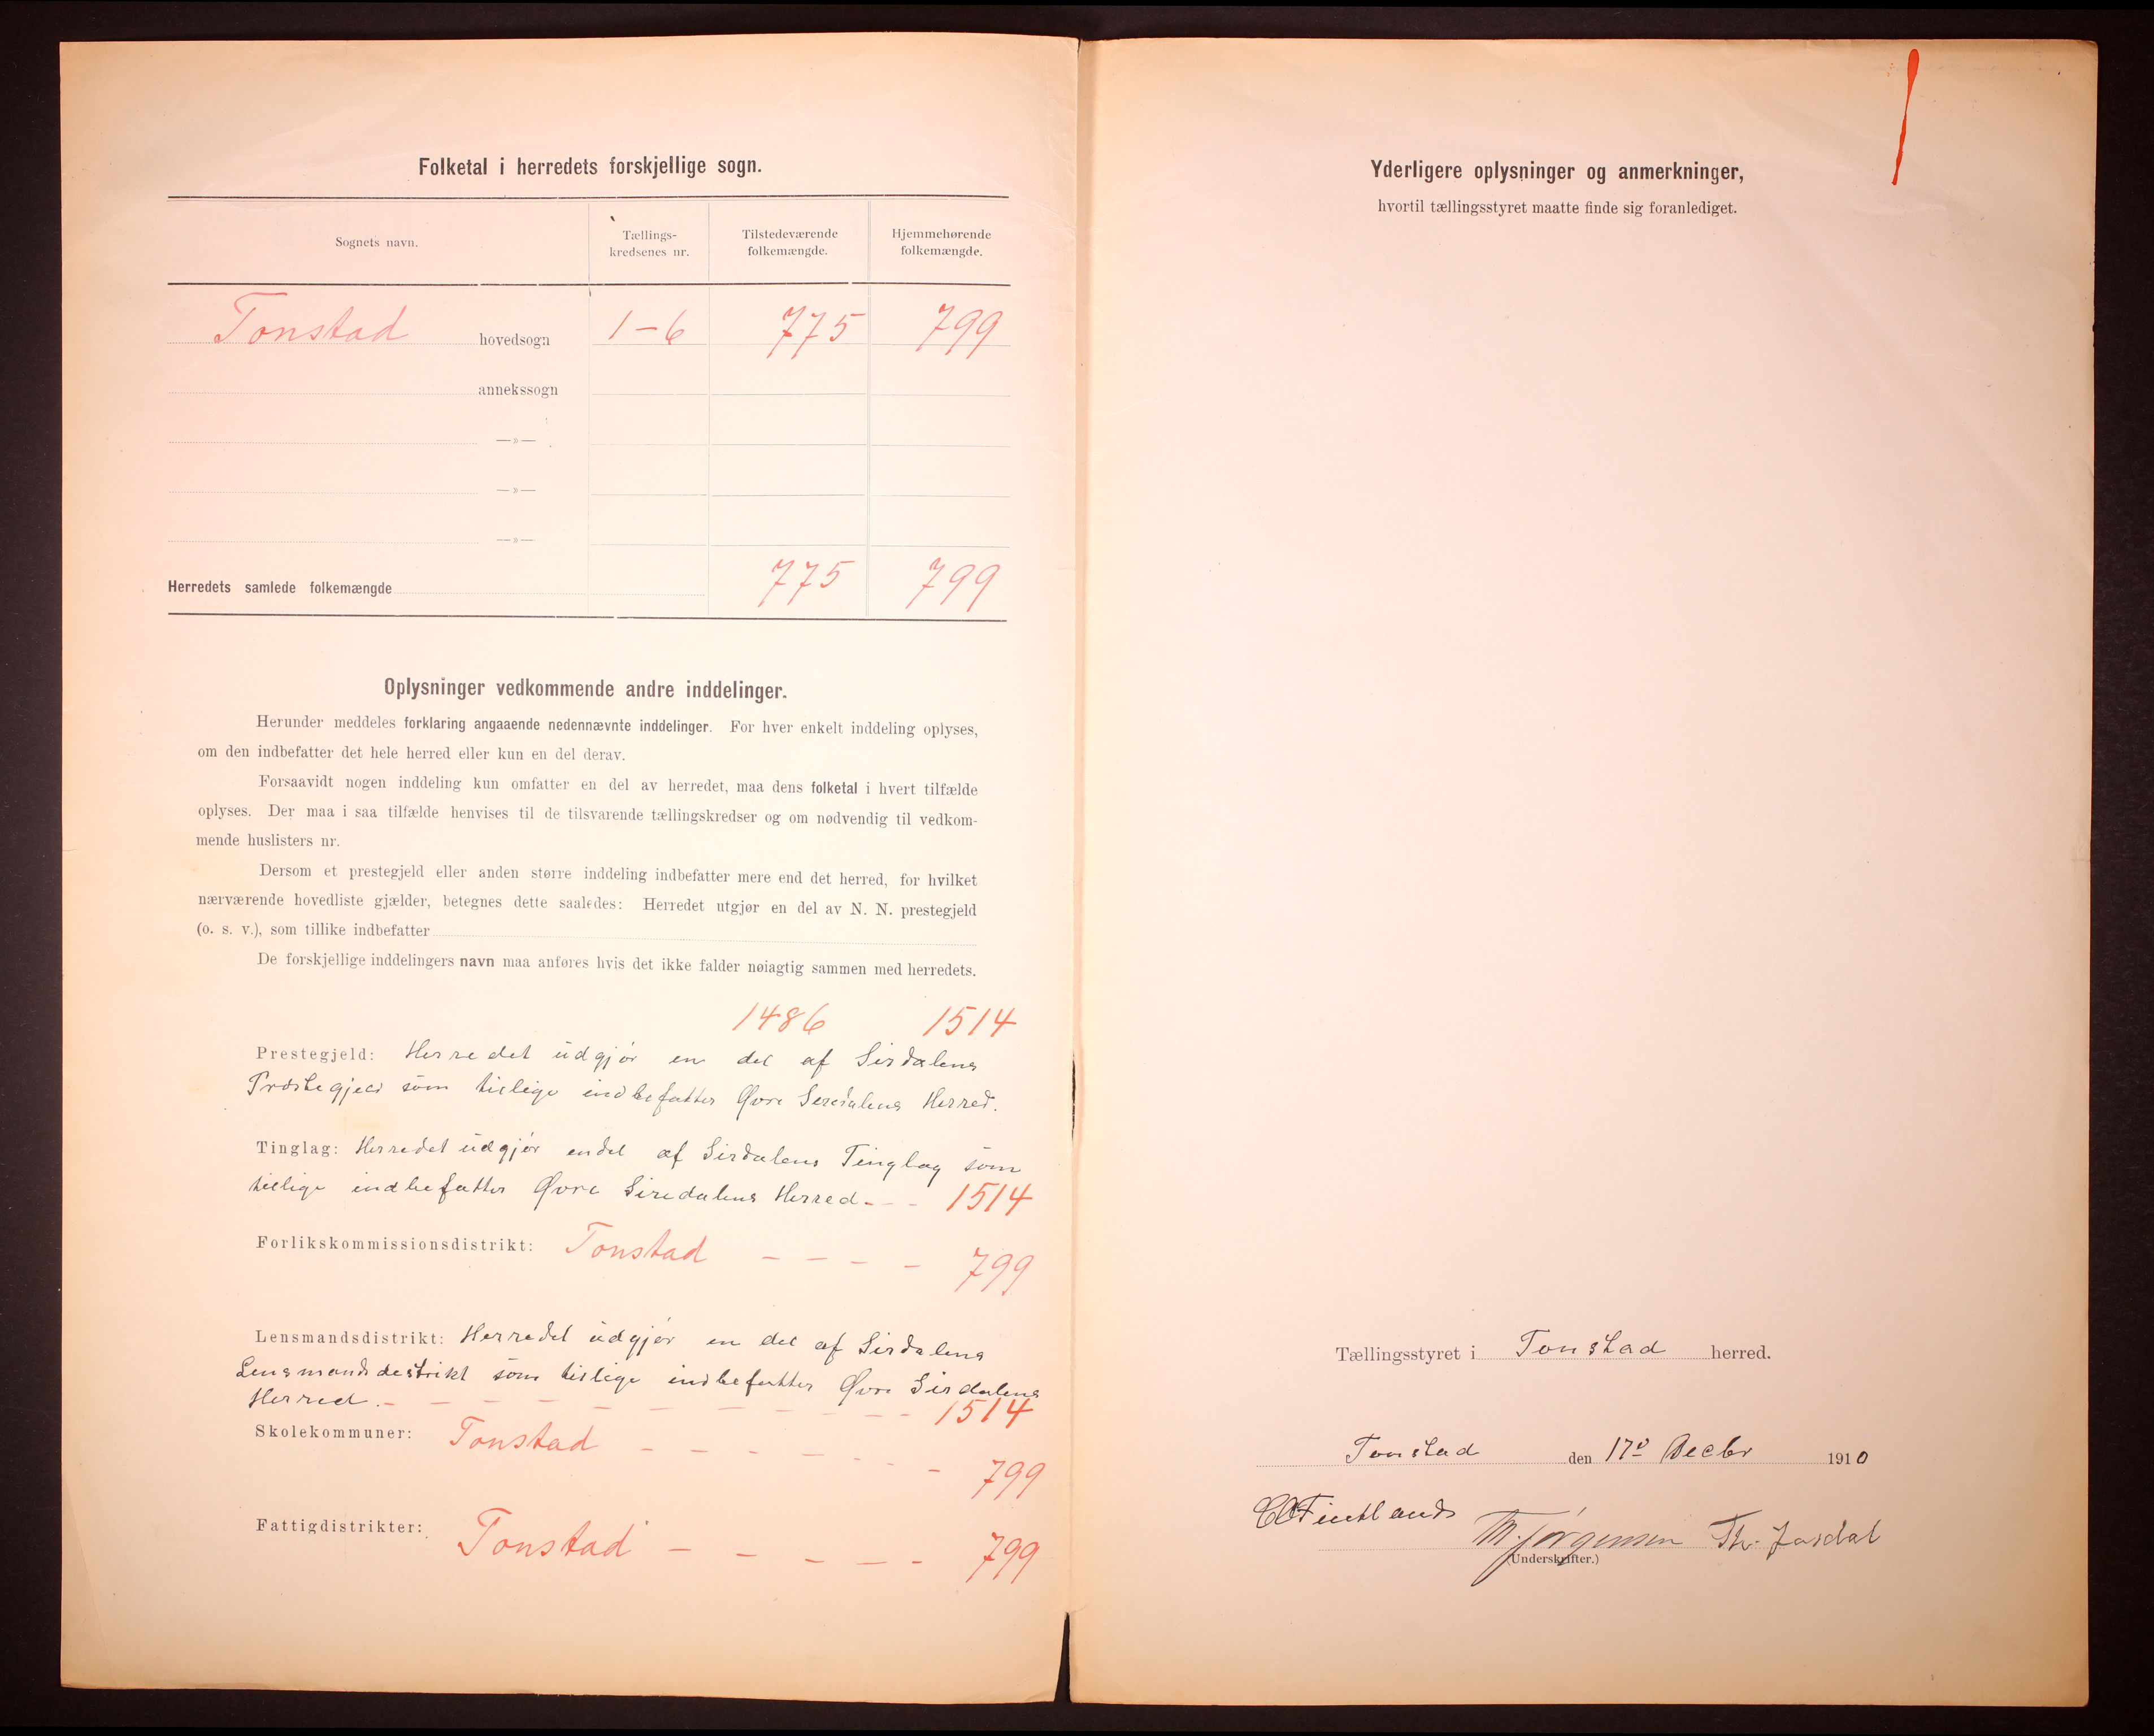 Folketal i herredets forskjellige sogn.
Sognets navn.
Tællings-
kredsenes nr.
Tilstedeværende
folkemængde.
Hjemmehørende
folkemængde.
Tonstad hovedsogn 1-6 775 799
annekssogn
—»—
—»—
—»—
Herredets samlede folkemængde 775 799
Oplysninger vedkommende andre inddelinger.
Herunder meddeles forklaring angaaende nedennævnte inddelinger. For hver enkelt inddeling oplyses,
om den indbefatter det hele herred eller kun en del derav.
Forsaavidt nogen inddeling kun omfatter en del av herredet, maa dens folketal i hvert tilfælde
oplyses. Der maa i saa tilfælde henvises til de tilsvarende tællingskredser og om nødvendig til vedkom-
mende huslisters nr.
Dersom et prestegjeld eller anden større inddeling indbefatter mere end det herred, for hvilket
nærværende hovedliste gjælder, betegnes dette saaledes: Herredet utgjør en del av N. N. prestegjeld
(o. s. v.), som tillike indbefatter
De forskjellige inddelingers navn maa anføres hvis det ikke falder nøiagtig sammen med herredets.
1486 1514
Prestegjeld: Herredet udgjør en del af Sirdalens
Præstegjeld som tillige indbefatter Øvre Siredalens Herred.
Tinglag: Herredet udgjør endel af Sirdalens Tinglag som
tillige indbefatter Øvre Siredalens Herred - - - 1514
Forlikskommissionsdistrikt: Tonstad - - - - 799
Lensmandsdistrikt: Herredet udgjør en del af Sirdalens
Lensmandsdestrikt som tillige indbefatter Øvre Sirdalens
Herred. - - - - - - - - - - - 1514
Skolekommuner: Tonstad - - - - - - - - 799
Fattigdistrikter: Tonstad - - - - - 799
Yderligere oplysninger og anmerkninger,
hvortil tællingsstyret maatte finde sig foranlediget.
Tællingsstyret i Tonstad herred.
Tonstad den 17de Decbr 1910
Fintlands Th. Jørgensen Th. Josdal
(Underskrifter.)